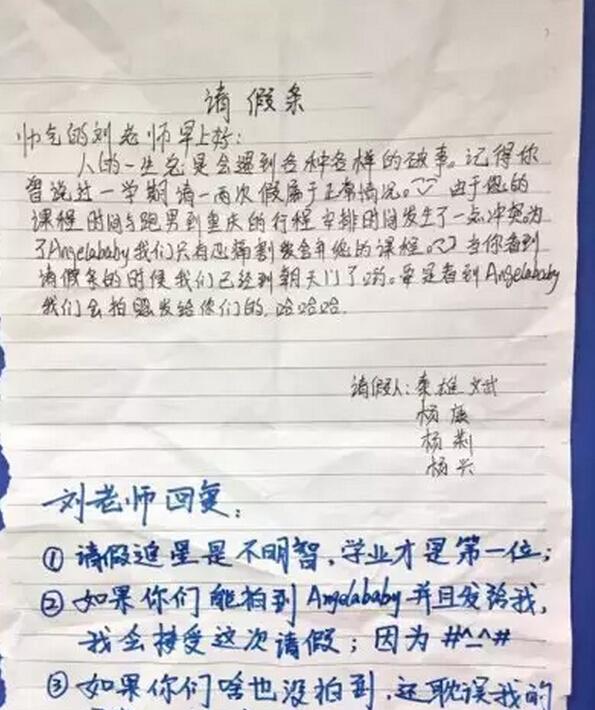 请假条
帅气的刘老师早上好:
人的一生总是会遇到各种各样的破事。记得你
曾说过一学期请一两次假属于正常情况。由于您的
课程时间与跑男到重庆的行程安排时间发生了一点冲突为
了Angelababy我们只有忍痛割舍弃您的课程。当你看到
请假条的时候我们已经到朝天门了哟。要是看到Angelababy
我们会拍照发给你们的,哈哈哈.
请假人:秦雄 文武
杨
杨
杨兴
刘老师回复:
①请假追星是不明智,学业才是第一位;
②如果你们能拍到Angelababy并且发给我,
我会接受这次请假;因为#^_^#
③如果你们啥也没拍到,还耽误我的